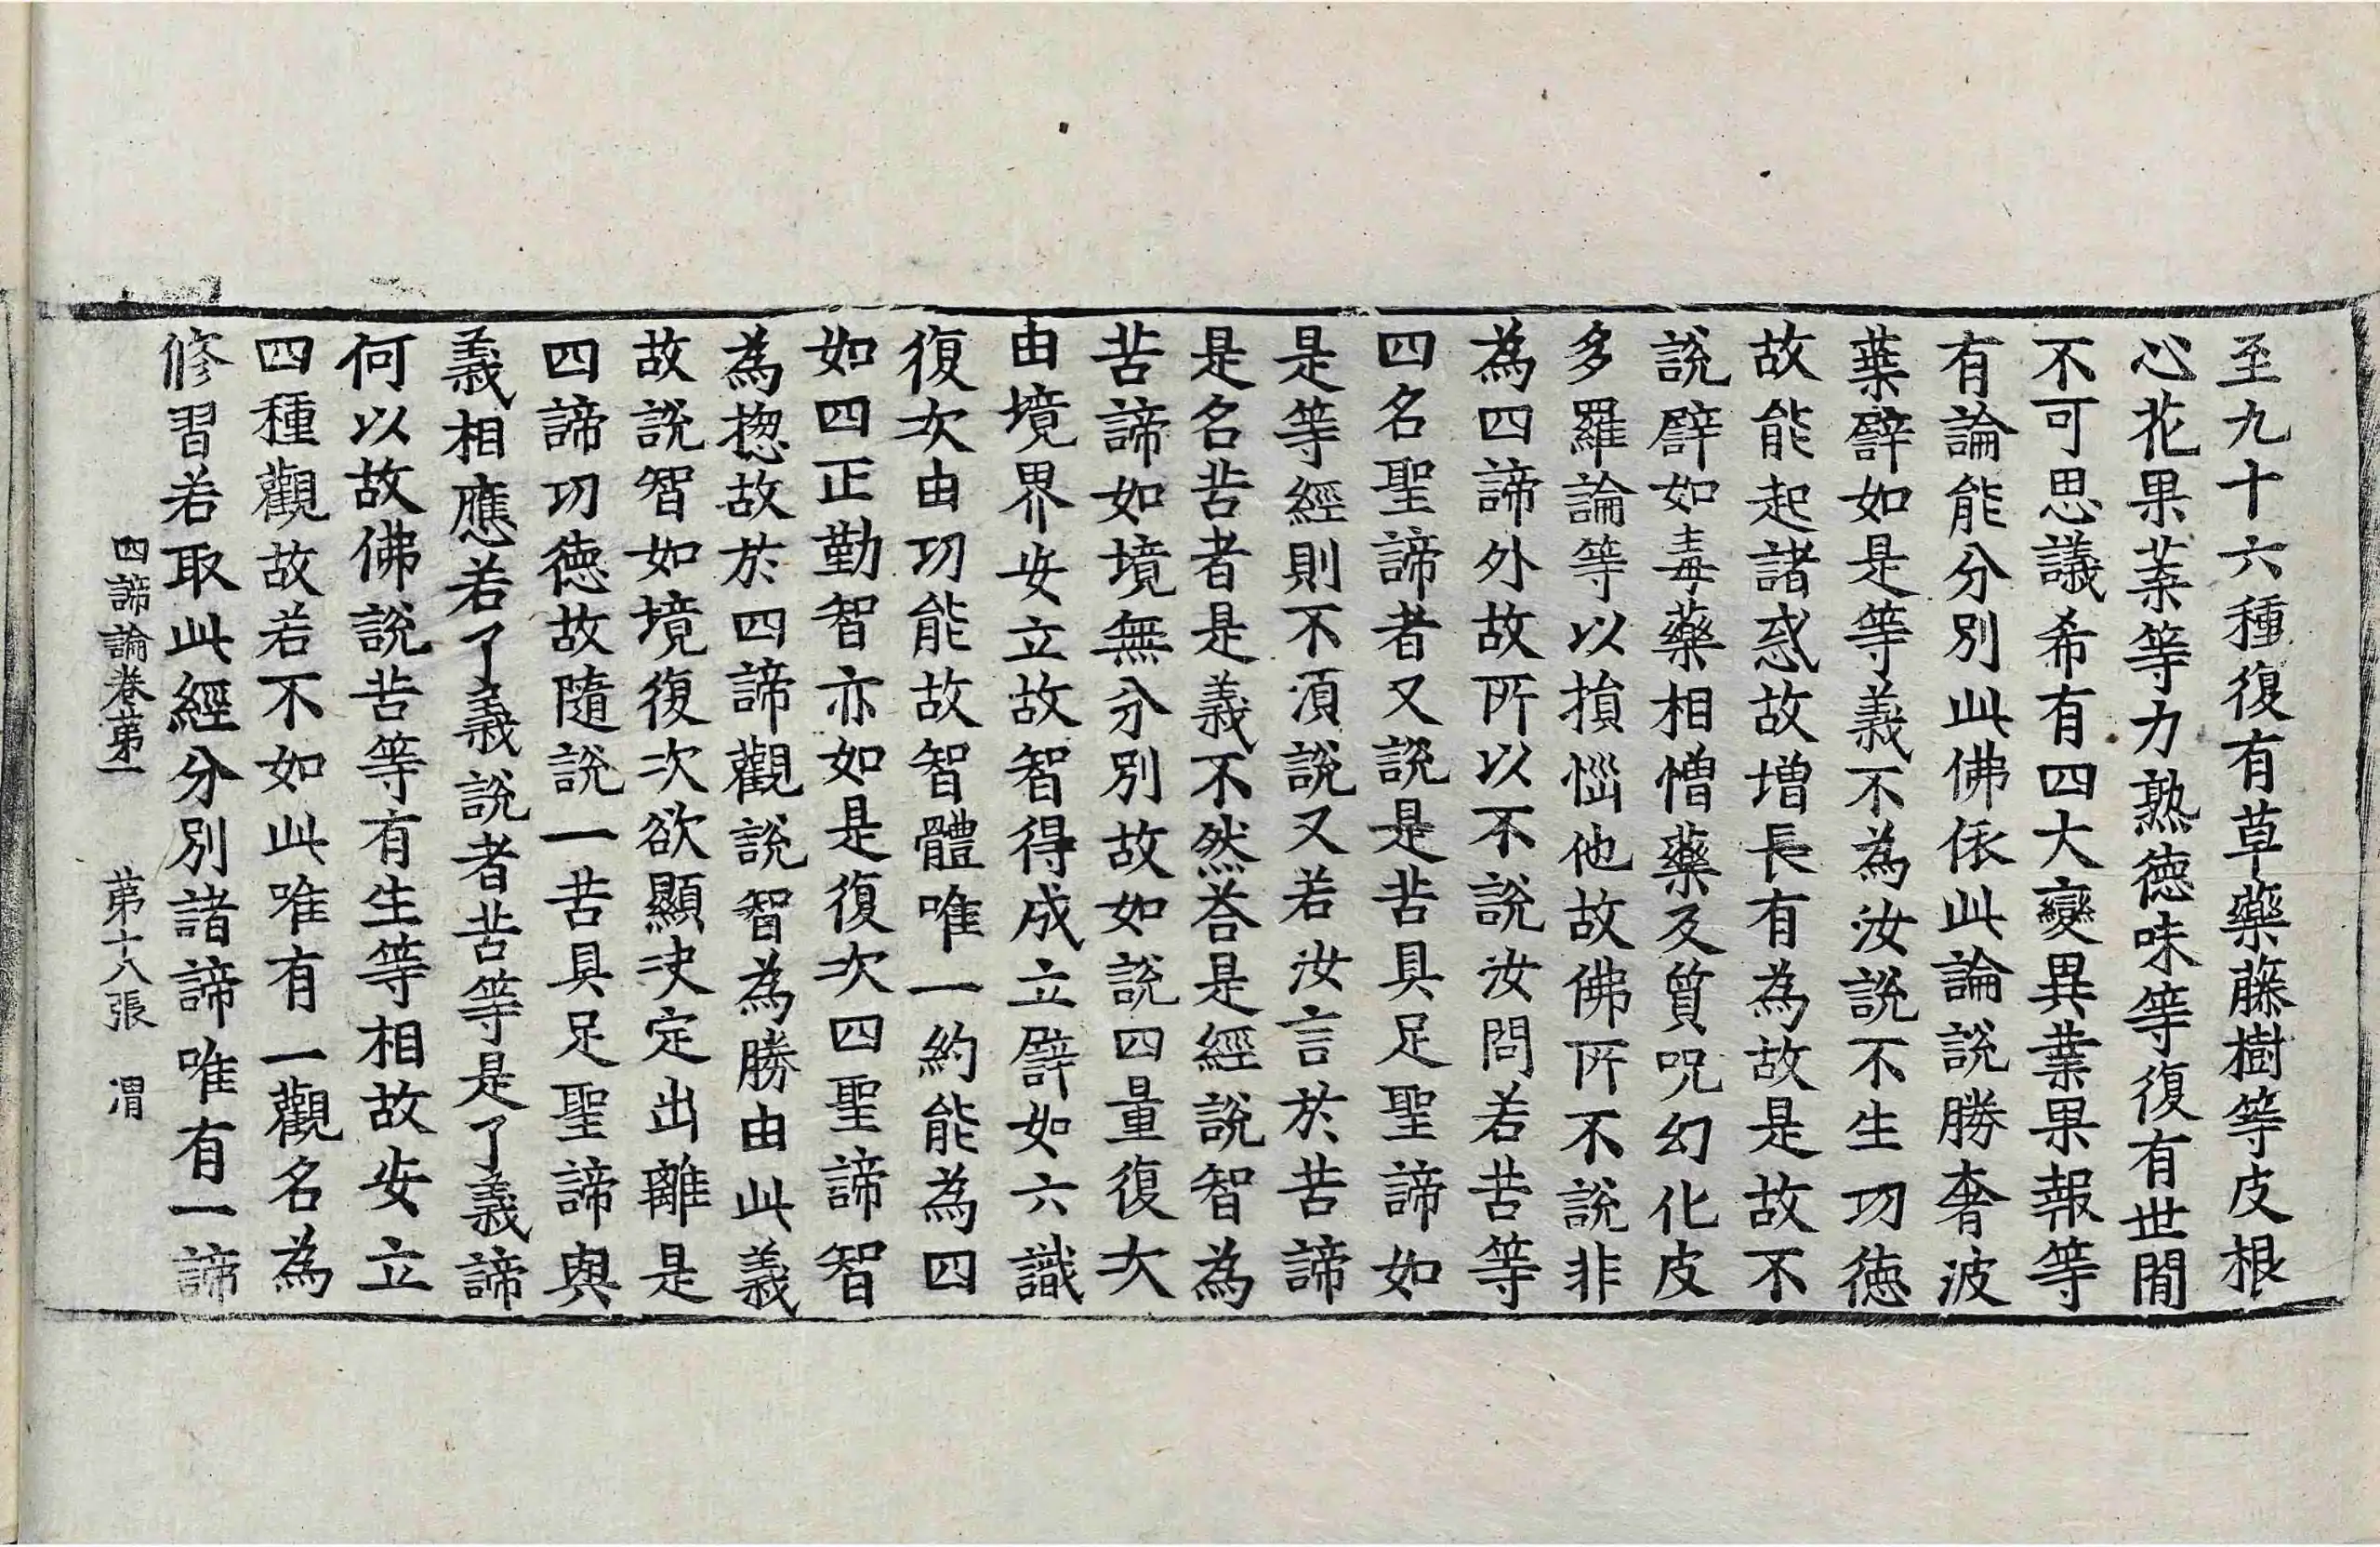 至九十六種復有草藥藤樹等皮根
心花果葉等力熟德味等復有世間
不可思議希有四大變異業果報等
有論能分別此佛依此論說勝奢波
葉譬如是等義不為汝說不生功德
故能起諸惑故增長有為故是故不
說譬如毒藥相憎藥及質呪幻化皮
多羅論等以損惱他故佛所不說非
為四諦外故所以不說汝問若苦等
四名聖諦者又說是苦具足聖諦如
是等經則不須說又若汝言於苦諦
是名苦者是義不然荅是經說智為
苦諦如境無分別故如說四量復次
由境界安立故智得成立譬如六識
復次由功能故智體唯一約能為四
如四正勤智亦如是復次四聖諦智
為揔故於四諦觀說智為勝由此義
故說智如境復次欲顯決定出離是
四諦功德故隨說一苦具足聖諦與
義相應若了義說者苦等是了義諦
何以故佛說苦等有生等相故安立
四種觀故若不如此唯有一觀名為
修習若取此經分別諸諦唯有一諦
四諦論卷第一 第十八張 渭